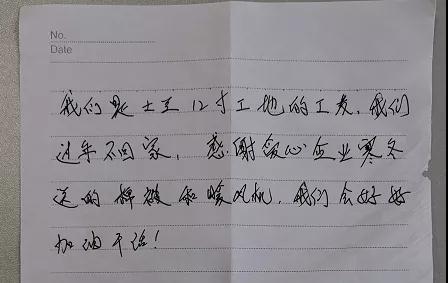 No.
Date
我们是土 12 工地的工友,我们
过年不回家,感谢爱心企业寒冬
送的棉被和暖风机,我们会好好
加油干活!